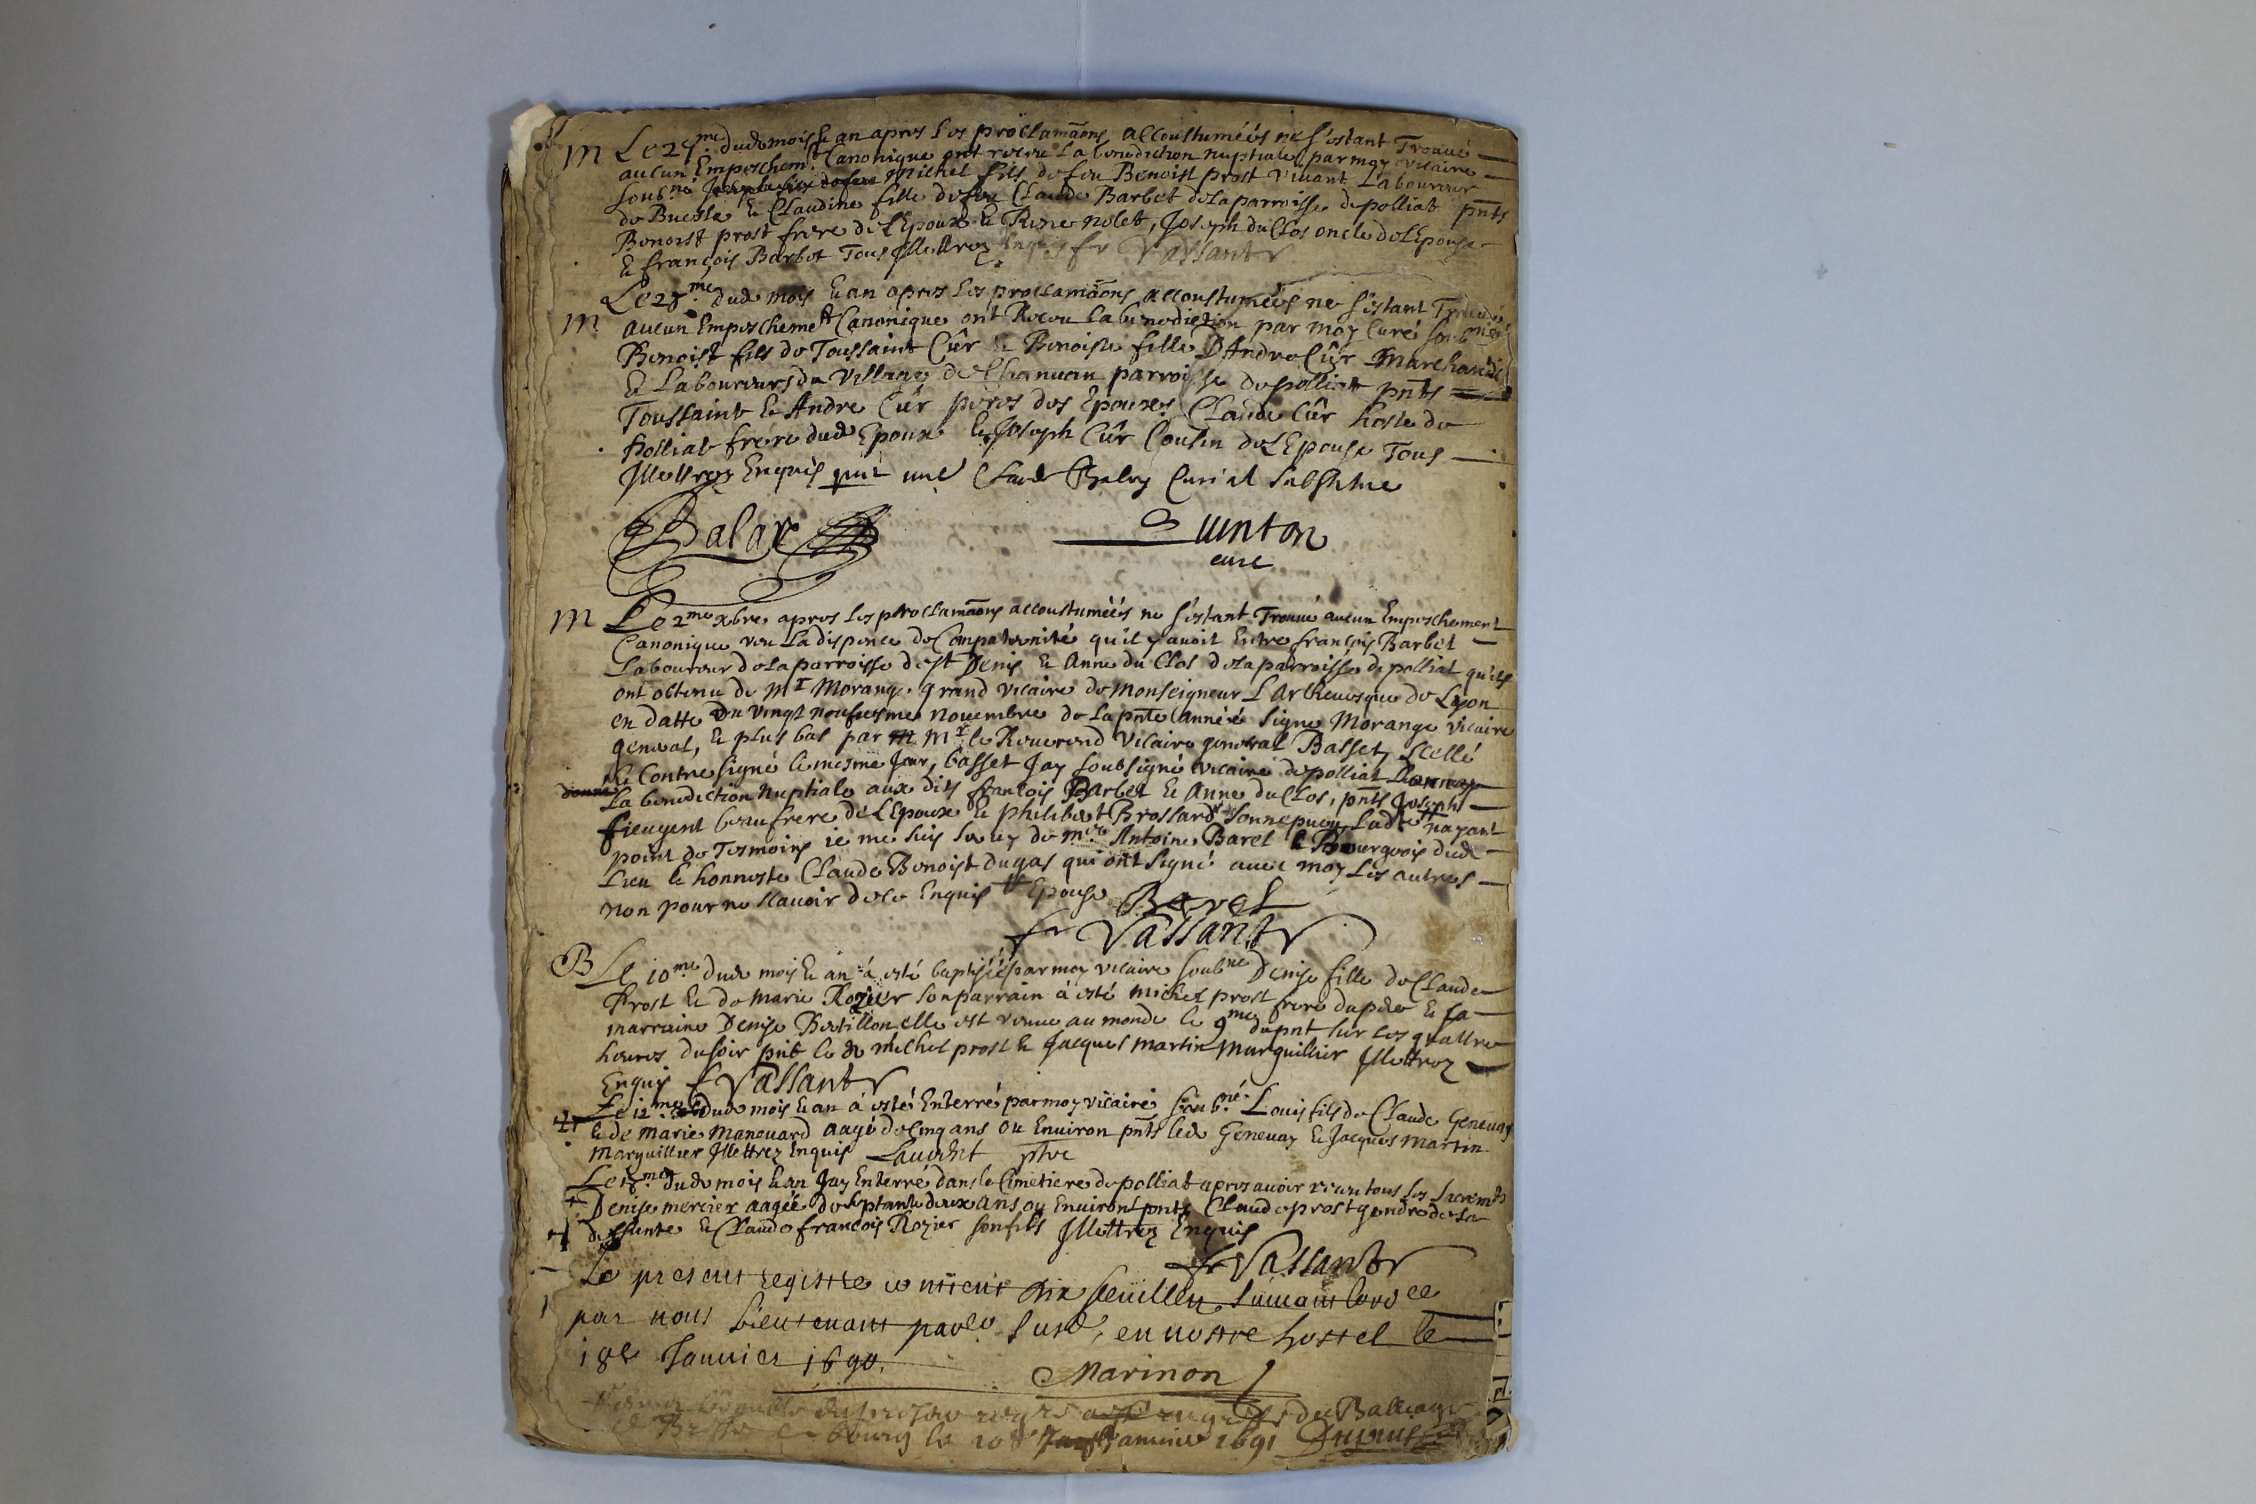 M Le 25me dud mois & an apres les proclamaõns accoustuméés ne s'estant Trouué
aucun Empeschemt Canonique ont receu La benediction nuptiale par moy vicaire
soubné Michel fils de feu Benoist prost viuant Laboureur
de Buesle & Claudine fille de feu Claude Barbet de la parroisse de polliat pnts
Benoist prost frere de l'Epoux & Rene nolet, Joseph du Clos oncle de l'Epouse
& françois Barbet Tous Illettrez Enquis fr Vassant
Le 25me dud mois & an apres les proclamaõns accoustuméés ne s'estant Trouué
M aucun Empeschemet Canonique ont Receu la benediction par moy Curé soubnsigé
Benoist fils de Toussaint Cûr & Benoiste fille D'Andre Cûr Marchands
& Laboureurs du Village de Chanuan parroisse de polliat pnts
Toussaint & Andre Cûr peres des Epouxes Claude Cûr hoste de
Polliat frere dud Epoux & Joseph Cûr Cousin de L'Epouse Tous
Illettrez Enquis
Balay Quinton
curé
M Le 2me xbre apres les proclamaõns accoustuméés ne s'estant Trouué aucun Empeschement
Canonique veu La dispence de Compaternité qu'il y auoit Entre françois Barbet
Laboureur de la parroisse de st Denis & Anne du Clos de la parroisse de polliat qu'ils
ont obtenu de Mr Morange grand vicaire de Monseigneur L'Archeuesque de Lyon
en datte du vingt neufuesme nouembre de la pnte année signe Morange vicaire
general, & plus bas par Mr le Reuerend vicaire general Basset, scellé
& Contresigné le mesme Jour, basset Jay soubsigné vicaire de polliat donné
La benediction nuptiale aux dits françois Barbet & Anne du Clos, pnts Joseph
fieugent beaufrere de L'Epoux & philibert Brossard n'ayant
point de Tesmoins ie me suis seruy de mre Antoine Barel Bourgeois dud
Lieu & honneste Claude Benoist dugas qui ont signé auec moy les autres
non pour ne scauoir de ce Enquis & Epouse Barel
fr Vassant
B Le 10me dud mois & an à esté baptiséé par moy vicaire soubné Denise fille de Claude
Prost & de Marie Rozier son parrain à esté Michel prost frere du pere & sa
marraine Denise Bertillon elle est venue au monde le 9me du pnt sur les quattre
heures du soir pnt le d Michel prost & Jacques Martin Marguillier Illettrez
Enquis fr Vassant
Le 12me dud mois & an à esté Enterré par moy vicaire soubné Louis fils de Claude Geneuay
& de Marie Manouard aagé de Cinq ans ou Enuiron pnts led Geneuay & Jacques Martin
Marguillier Illettrez Enquis ptre
Le 18me dud mois & an Jay Enterré dans le Cimetiere de polliat apres auoir receu tous les sacremts
Denise mercier aagéé de septante deux ans ou Enuiron pnts Claude prost gendre de la
deffunte & Claude françois Rozier son fils Illettrez Enquis
fr Vassant
Le present registre contient dix feuillets
par nous Lieutenant en nostre hostel le
18e Januier 1690.
Marinon
du Balliage
de Bresse a bourg le 10e Januier 1691